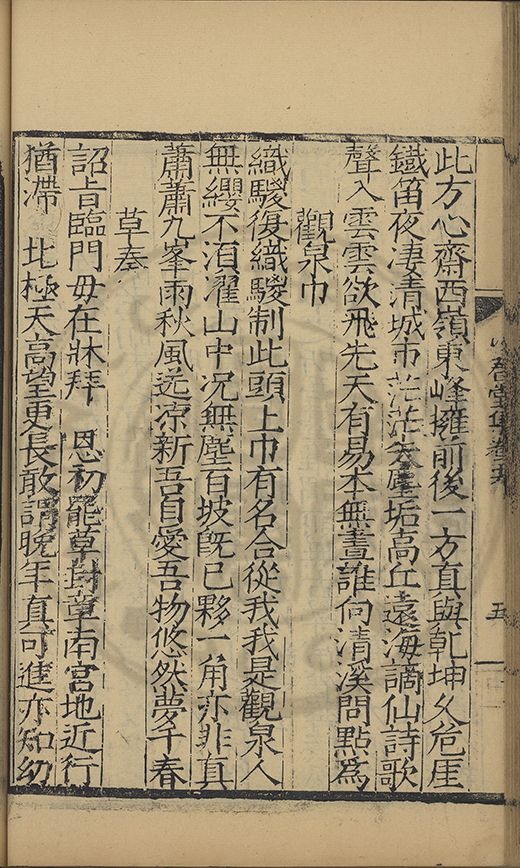 此方心齋西嶺東峰擁前後一方真與乾坤久危厓
鐵笛夜淒清城市茫茫失塵垢高丘遠海謫仙詩歌
聲入雲雲欲飛先天有易本無畫誰向清溪問點為
觀泉巾
織騣復織騣制此頭上巾有名合從我我是觀泉人
無纓不湏濯山中况無塵百坡旣已夥一角亦非真
蕭蕭九峯雨秋風送凉新吾自愛吾物悠然夢千春
草奏
詔旨臨門毋在牀拜 恩初罷草封章南宮地近行
猶滯 北極天高望更長敢謂晚年真可進亦知幼
五